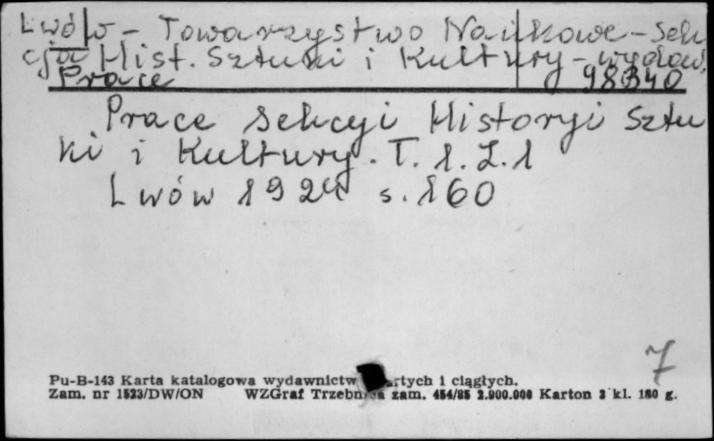 Lwów - Towarzystwo Naukowe - Sek
cja Hist. Sztuki i Kultury - wydaw.
Prace 98340
Prace Sekcyi Historyi Sztu
ki i Kultury. T. 1. Z. 1
Lwów 1924 s. 160
7
Pu-B-143 Karta katalogowa wydawnictw rtych i ciągłych.
Zam. nr 1523/DW/ON WZGraf Trzebnica zam. 454/85 2.900.000 Karton 3 kl. 180 g.